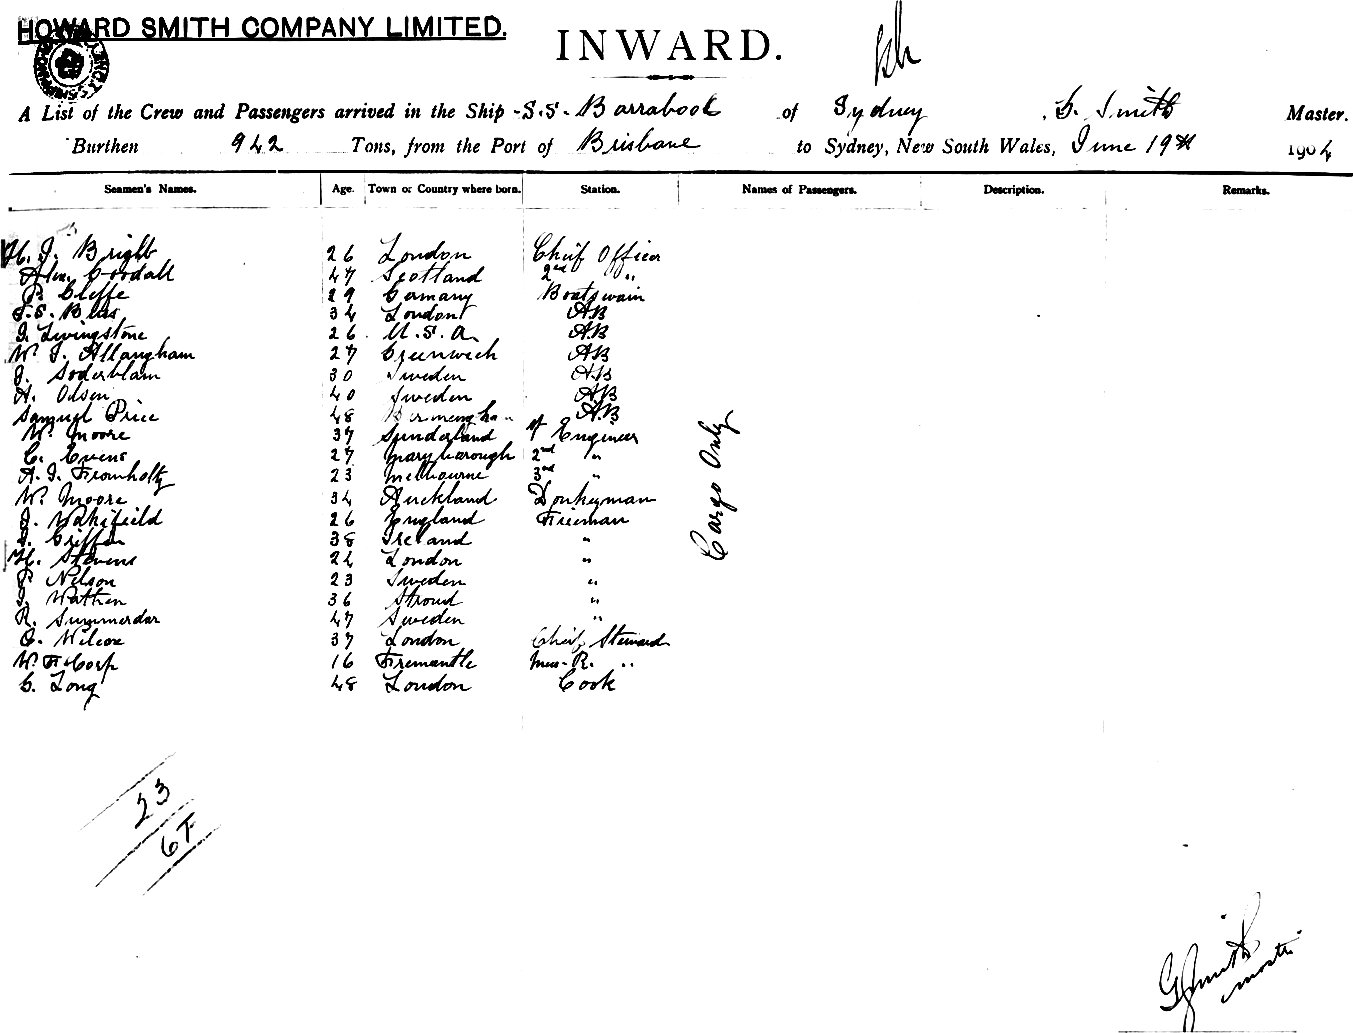 HOWARD SMITH COMPANY LIMITED.
INWARD.
A List of the Crew and Passengers arrived in the Ship S.S. Barrabool of Sydney, G. Smith Master.
Burthen 942 Tons, from the Port of Brisbane to Sydney, New South Wales, June 19th 1904
Seamen's Names. Age. Town or Country where born. Station. Names of Passengers. Description. Remarks.
H. J. Bright 26 London Chief Officer
Alex. Goodall 47 Scotland 2nd "
P. Gleffe 29 Germany Boatswain
34 London AB
J. Livingstone 26 U.S.A. AB
W. J. Allangham 27 Greenwich AB
J. Soderblam 30 Sweden AB
A. Olsen 40 Sweden AB
Samuel Price 48 AB
W. Moore 37 Sunderland 1st Engineer
C. Evens 27 Maryborough 2nd "
A. J. Fromholtz 23 Melbourne 3rd "
W. Moore 34 Auckland Donkeyman
J. Wakifield 26 England Fireman
J. Griffen 38 Ireland "
H. Stevens 24 London "
P. Nelson 23 Sweden "
J. Wathen 36 Stroud "
R. Summerdar 47 Sweden "
C. Wilcox 37 London Chief Steward
W. F. Corp 16 Fremantle Mess-R. "
G. Long 48 London Cook
Cargo Only
23
6F
G Smith
Master